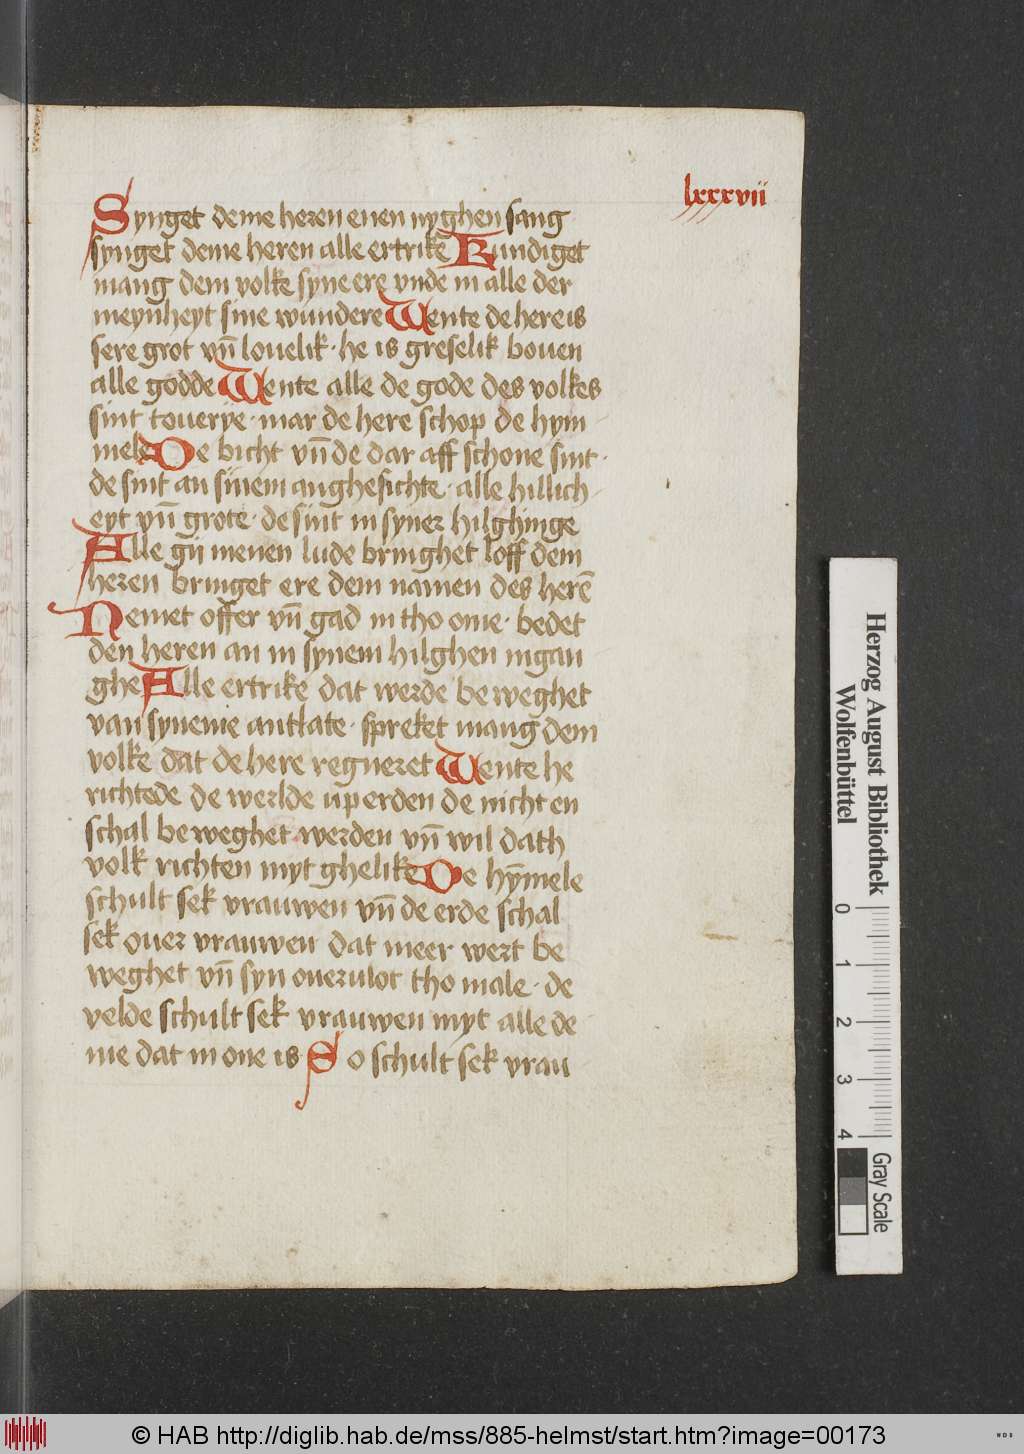 lxxxvii
Synget deme heren enen nyghen sang
synget deme heren alle ertrike Kundiget
mang dem volke syne ere vnde in alle der
meynheyt sine wundere Wente de here is
sere grot vn̄ louelik · he is greselik bouen
alle godde Wente alle de gode des volkes
sint touerye · mar de here schop de hym
mele De bicht vn̄ de dar aff schone sint ·
de sint an sinem anghesichte · alle hillich
eyt vn̄ grote · de sint in syner hilghinge
Alle gy menen lude bringhet loff dem
heren bringet ere dem namen des herē
Nemet offer vn̄ gad in tho ome · bedet
den heren an in synem hilghen ingan
ghe Alle ertrike dat werde be weghet
van syneme antlate · spreket mang dem
volke dat de here regneret Wente he
richtede de werlde up erden de nicht en
schal be weghet werden vn̄ wil dath
volk richten myt ghelike De hȳmele
schult sek vrauwen vn̄ de erde schal
sek ouer vrauwen dat meer wert be
weghet vn̄ syn ouerulot tho male · de
velde schult sek vrauwen myt alle de
me dat in one is So schult sek vrau
Herzog August Bibliothek
Wolfenbüttel
0
1
2
3
4
Gray Scale
© HAB http://diglib.hab.de/mss/885-helmst/start.htm?image=00173